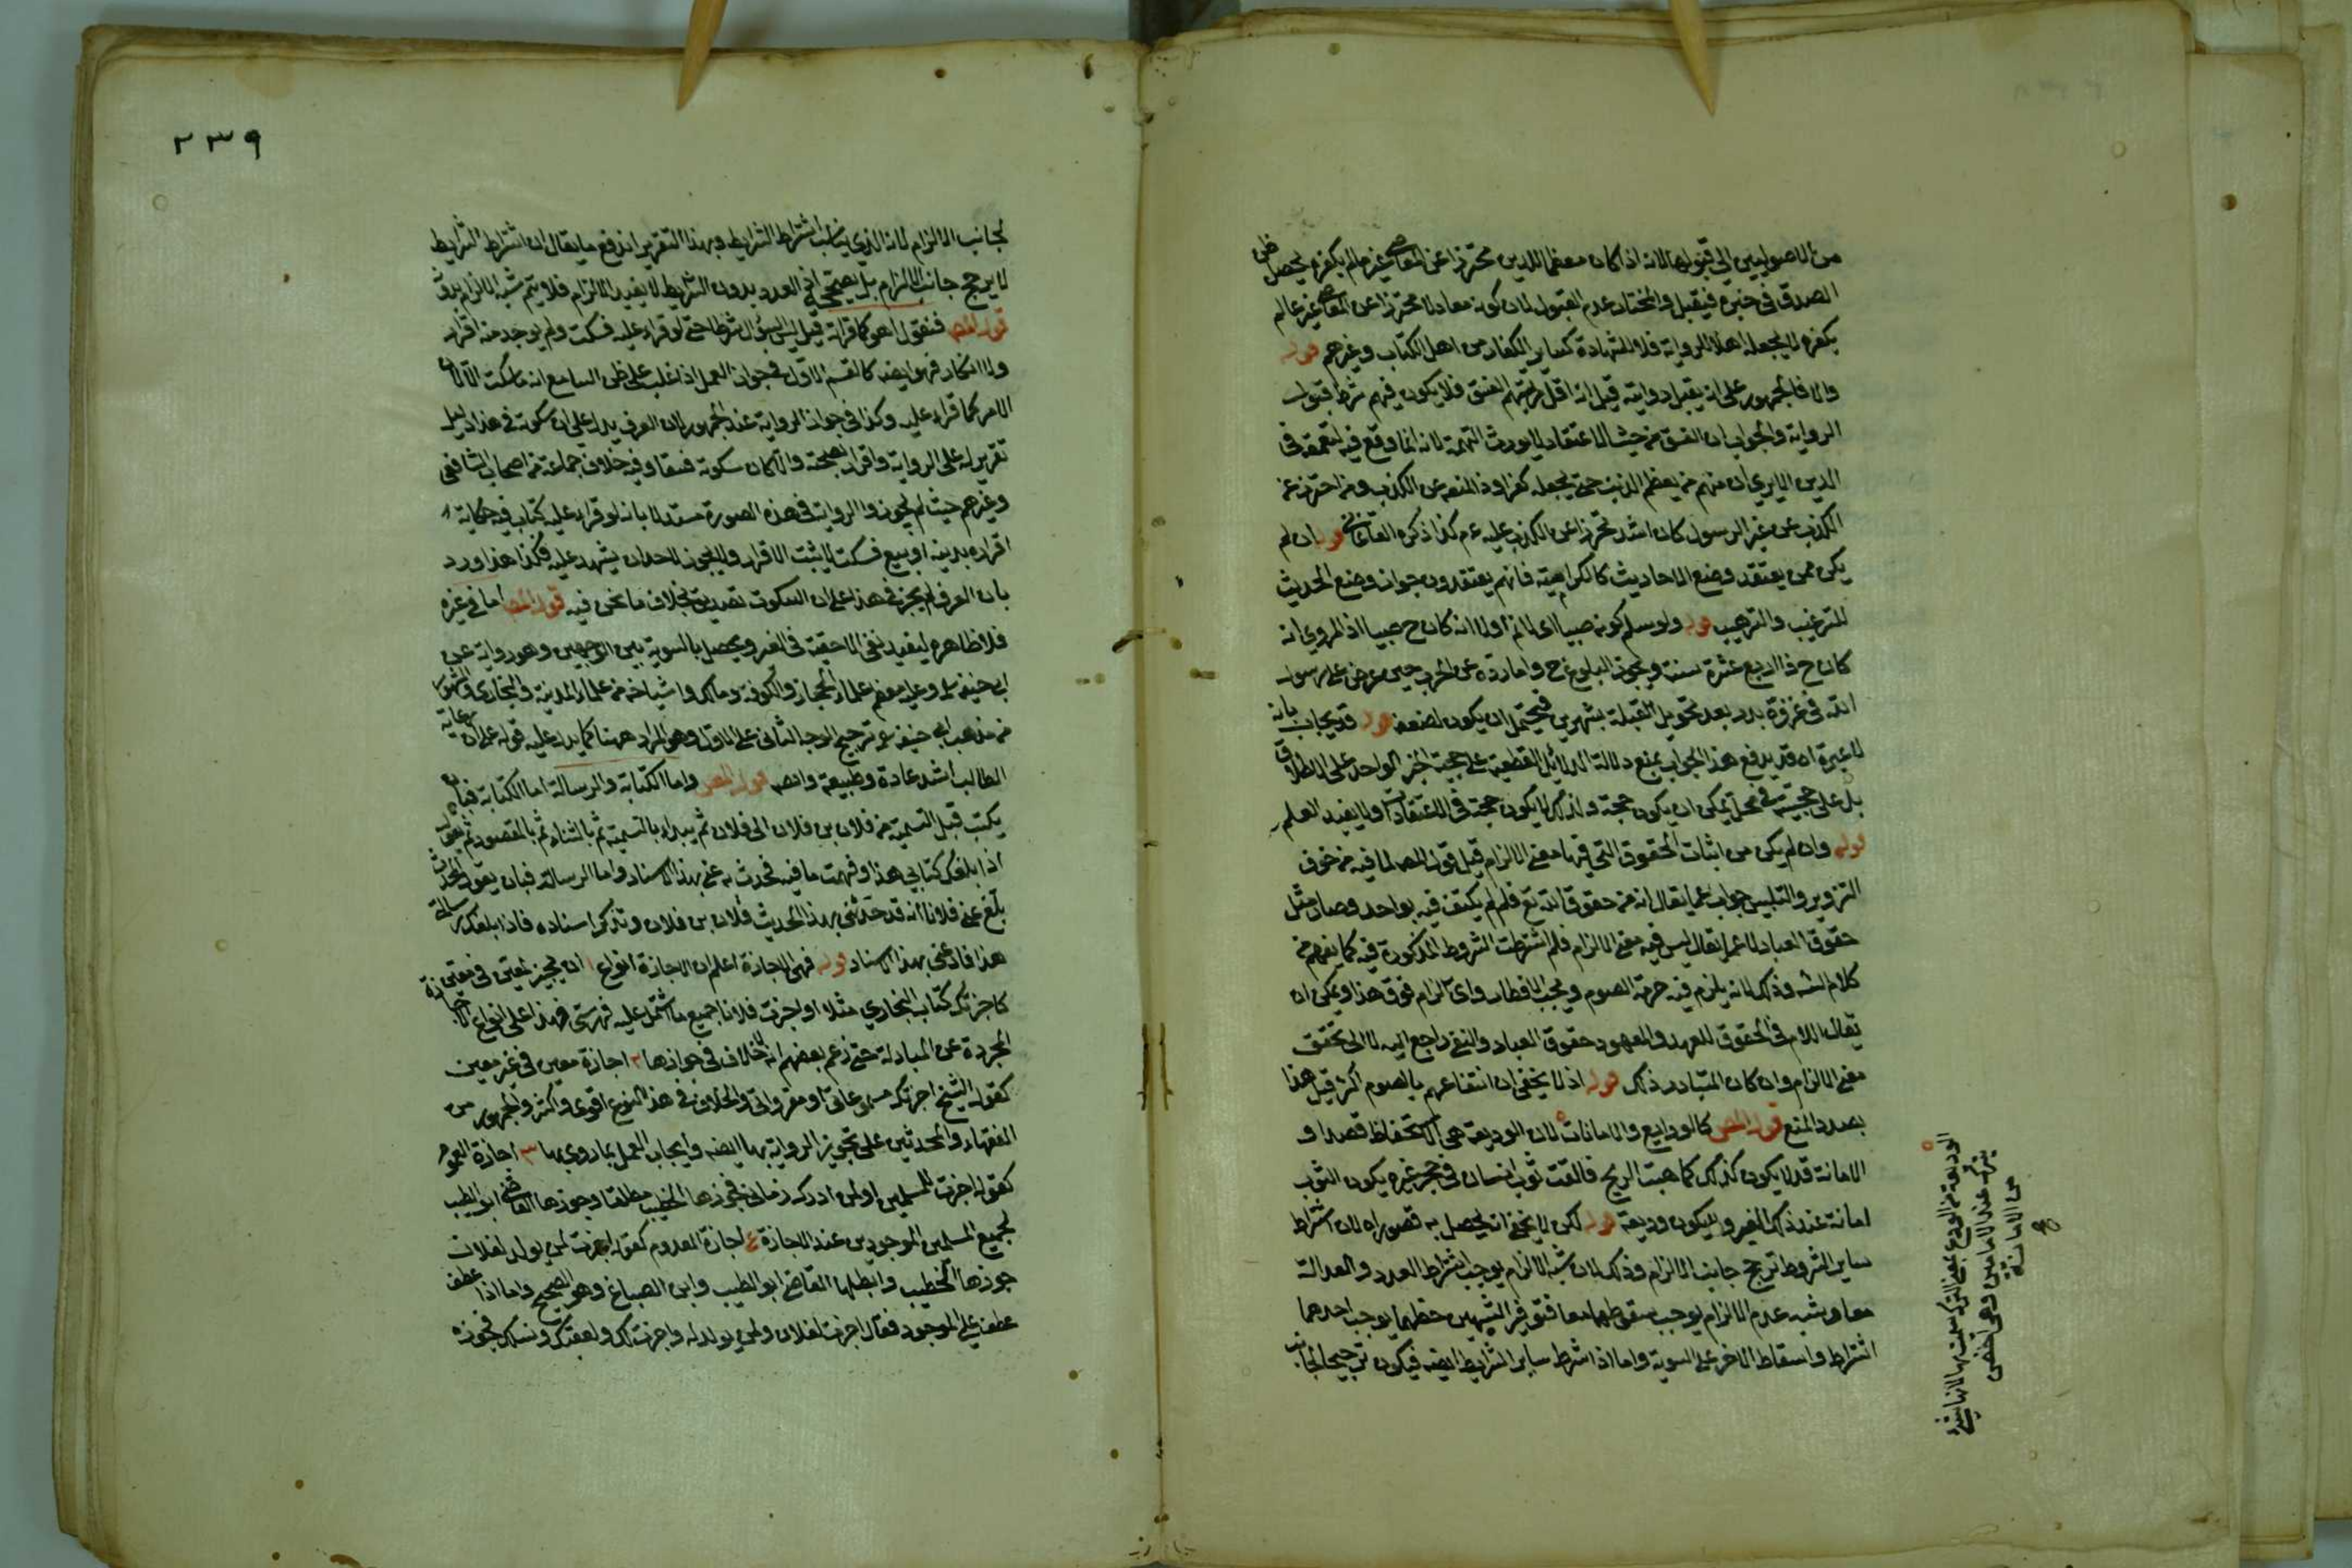 من الاصوليين الى قبولها لانه اذا كان معظما للدين محترزا عن المعاصي غير عالم بكفره يحصل ظن
الصدق في خبره فيقبل والمختار عدم القبول لان كونه معادلا محترزا عن المعاصي غير عالم
بكفره لا يجعله اهلا للرواية فلا للشهادة كساير الكفار من اهل الكتاب وغيرهم قوله
والا فالجمهور على انه يقبل روايته قيل انه اقل مرتبتهم الفسق فلا يكون فيهم شرط قبول
الرواية والجواب ان الفسق من حيث الاعتقاد لا يورث التهمة لانه انما وقع فيه لتعمقه في
الدين الا يرى ان منهم من يعظم الذنب حتى يجعله كفرا وذا لمنعه عن الكذب ومن احترز عن
الكذب عن غير الرسول كان اشد تحرزا عن الكذب عليه عم كذا ذكره القاآني قوله ان لم
يكن ممن يعتقد وضع الاحاديث كالكرامية فانهم يعتقدون جواز وضع الحديث
للترغيب والترهيب قوله ولو سلم كونه صبيا اى لا نم اولا انه كان ح صبيا اذ المروي انه
كان ح ذا اربع عشرة سنة ويجوز البلوغ ح واما رده عن الحرب حين عرض على رسول
الله في غزوة بدر بعد تحويل القبلة بشهرين فيحتمل ان يكون لضعفه قوله قد يجاب بانه
لا عبرة اه قد يدفع هذا الجواب بمنع دلالة الدلائل القطعية على حجية الخبر الواحد على الاطلاق
بل على حجيته في محل يمكن ان يكون حجة ولذلك لا يكون حجة في الاعتقادات ولا يفيد العلم
قوله وان لم يكن من اثبات الحقوق التي فيها معنى الالزام قيل قول المص لما فيه من خوف
التزوير والتلبيس جواب عما يقال انه من حقوق الله تع فلم لم يكتف فيه بواحد وصار مثل
حقوق العباد لا عما يقال ليس فيه معنى الالزام فلم اشترطت الشروط المذكورة فيه كما يفهم من
كلام الشه وذلك لانه يلزم فيه حرمة الصوم ويجب الافطار واى الزام فوق هذا ويمكن ان
يقال اللام في الحقوق للعهد والمعهود حقوق العباد والنفي راجع اليه لا الى تحقق
معنى الالزام وان كان المتبادر ذلك قوله اذ لا يخفى ان انتفاعهم بالصوم اكثر قيل هذا
بصدد المنع قول المص كالودايع والامانات لان الوديعة هي الاستحفاظ قصدا و
الامانة قد لا يكون كذلك كما هبت الريح فالقت ثوب انسان في حجر غيره يكون الثوب
امانة عند ذلك الغير ولا يكون وديعة قوله لكن لا يخفى انه يحصل به قصور اه لان اشتراط
ساير الشروط ترجح جانب الالزام وذلك لان شبه الالزام يوجب اشتراط العدد والعدالة
معا وشبه عدم الالزام يوجب سقوطهما معا فتوفير الشبهين حظهما يوجب احدهما
اشتراط واسقاط الاخر على السوية واما اذا شرط ساير الشرايط ايضه فيكون ترجيحا لجانب
الوديعة من الودع بمعنى الترك سميت بها لانها شئ
يترك عند الامين وهي اخص
من الامانة
٢٣٩
لجانب الالزام لانه الذي يناسب اشتراط الشرايط وبهذا التقرير اندفع ما يقال ان اشتراط الشرايط
لا يرجح جانب الالزام بل يصححه اذ العدد بدون الشرايط لا يفيد الالزام فلا يتم شبه الالزام بدونه
قول المص فنقول اهو كما قرات قيل ليس السؤال شرطا حتى لو قراء عليه فسكت ولم يوجد منه اقرار
ولا انكار فهو ايضه كالقسم الاول في جواز العمل اذا غلب على ظن السامع انه ما سكت الا لان
الامر كما قراء عليه وكذا في جواز الرواية عند الجمهور لان العرف يدل على ان سكوته في هذا دليل
تقريره على الرواية واقرار بصحته والا كان سكوته فسقا وفيه خلاف جماعة من اصحاب الشافعي
وغيرهم حيث لم يجوزوا الرواية في هذه الصورة مستدلا بانه لو قراء عليه كتاب فيه حكاية
اقراره بدين او بيع فسكت لا يثبت الاقرار ولا يجوز لاحد ان يشهد عليه فكذا هذا ورد
بان العرف لم يجز في هذا على ان السكوت تصديق بخلاف ما نحن فيه قول المص اما في غيره
فلا ظاهره ليفيد نفي الاحقية في الغير ويحصل بالسوية بين الوجهين وهو رواية عن
ابي حنيفة وعليه معظم علماء الحجاز والكوفة ومالك واشياخه من علماء المدينة والبخاري والمشهور
من مذهب ابي حنيفة ترجيح الوجه الثاني على الاول وهو المراد ههنا كما يدل عليه قوله على ان رعاية
الطالب اشد عادة وطبيعة وافصه قول المص واما الكتابة والرسالة اما الكتابة فبان
يكتب قبل التسمية من فلان بن فلان الى فلان ثم يبداء بالتسمية ثم بالثناء ثم بالمقصود ثم يقول
اذا بلغك كتابي هذا وفهمت ما فيه فحدث به عني بهذا الاسناد واما الرسالة فبان يقول المحدث
بلغ عني فلانا انه قد حدثني بهذا الحديث فلان بن فلان وتذكر اسناده فاذا بلغك رسالتي
هذا فاروه عني بهذا الاسناد قوله فهي الاجازة اعلم ان الاجازة انواع ١ ان يجيز لمعين في معين
كاجزتك كتاب البخاري مثلا او اجزت فلانا جميع ما اشتمل عليه فهرستي فهذا اعلى انواع الاجازة
المجردة عن المناولة حتى زعم بعضهم انه لا خلاف في جوازها ٢ اجازة معين في غير معين
كقول الشيخ اجزتك مسموعاتي او مقرواتي والخلاف في هذا النوع اقوى واكثر والجمهور من
الفقهاء والمحدثين على تجويز الرواية بها ايضه وايجاب العمل بما روى بها ٣ اجازة العموم
كقوله اجزت للمسلمين او لمن ادرك زماني فجوزها الخطيب مطلقا وجوزها القاضي ابو الطيب
لجميع المسلمين الموجودين عند الاجازة ٤ اجازة المعدوم كقوله اجزت لمن يولد لفلان
جوزها الخطيب وابطلها القاضي ابو الطيب وابن الصباغ وهو الصحيح واما اذا عطف
عطف على الموجود فقال اجزت لفلان ولمن يولد له واجزت لك ولعقبك ونسلك فجوزه